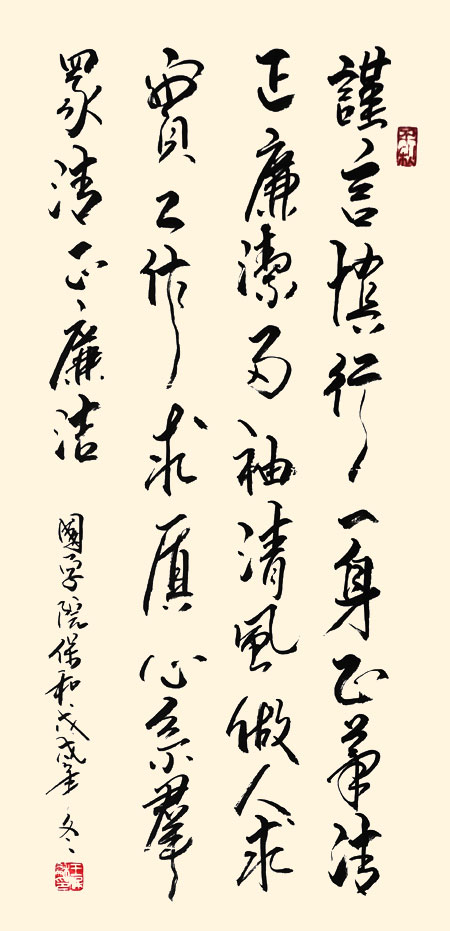 謹言慎行一身正氣清
正廉潔两袖清風做人求
實工作求真心系羣
眾清正廉洁
國學院保和戊戌年冬